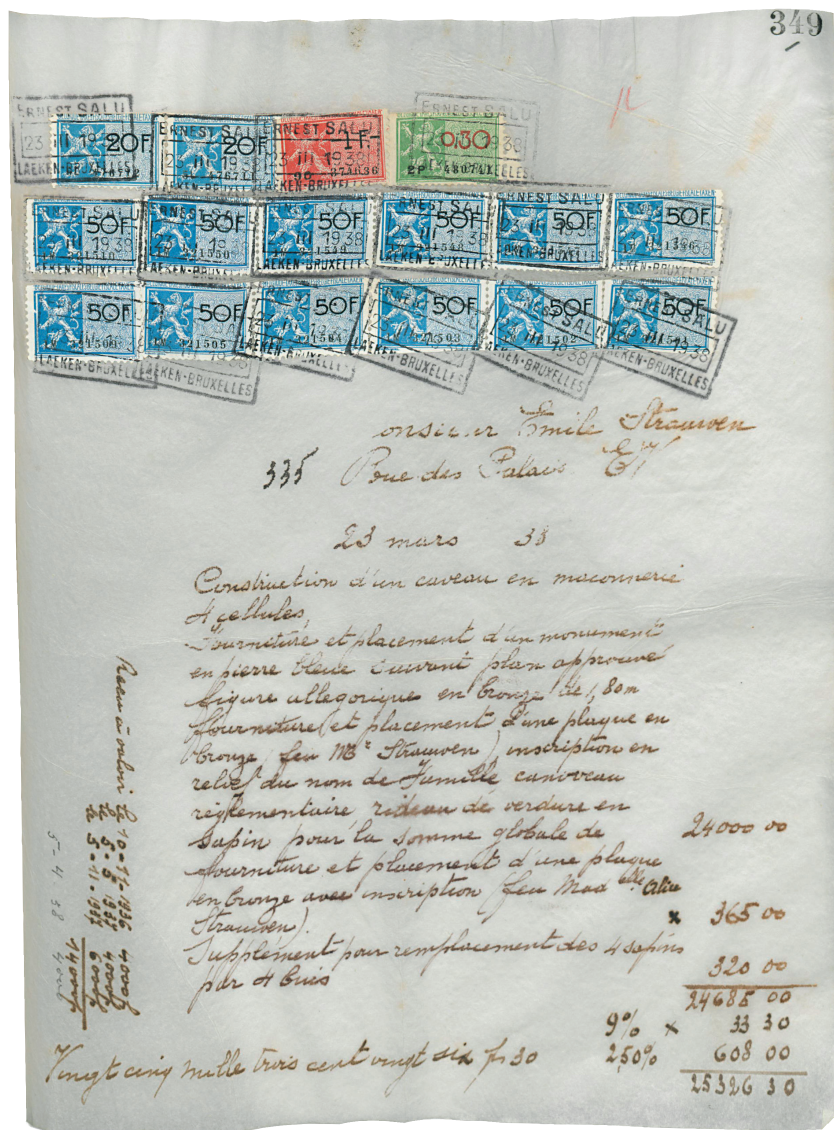 349
ERNEST SALU
23 III 1938
LAEKEN-BRUXELLES
20F. 20F. 1F.- 0,50
50F. 50F. 50F. 50F. 50F. 50F.
50F. 50F. 50F. 50F. 50F. 50F.
onsieur Emile Strauwen
335 Rue des Palais E/V
23 mars 38
Construction d'un caveau en maconnerie
4 cellules,
Fourniture et placement d'un monument
en pierre bleue suivant plan approuvé
figure allegorique en bronze de 1,80m
fourniture (et placement d'une plaque en
bronze, feu Mr Strauwen), inscription en
relief du nom de Famille caniveau
réglementaire, rideau de verdure en
sapin pour la somme globale de 24000 00
fourniture et placement d'une plaque
en bronze avec inscription (feu Mad elle
Strauwen). x 365 00
Supplément pour remplacement des 4 sapins
par 4 buis 320 00
24685 00
9% x 33 30
Vingt cinq mille trois cent vingt six frs 30 2,50% 608 00
25326 30
Recu à valoir le 10-7-1936 4000
le 5-5-1937 4000
le 5-11-1937 6000
14000
5-4-38